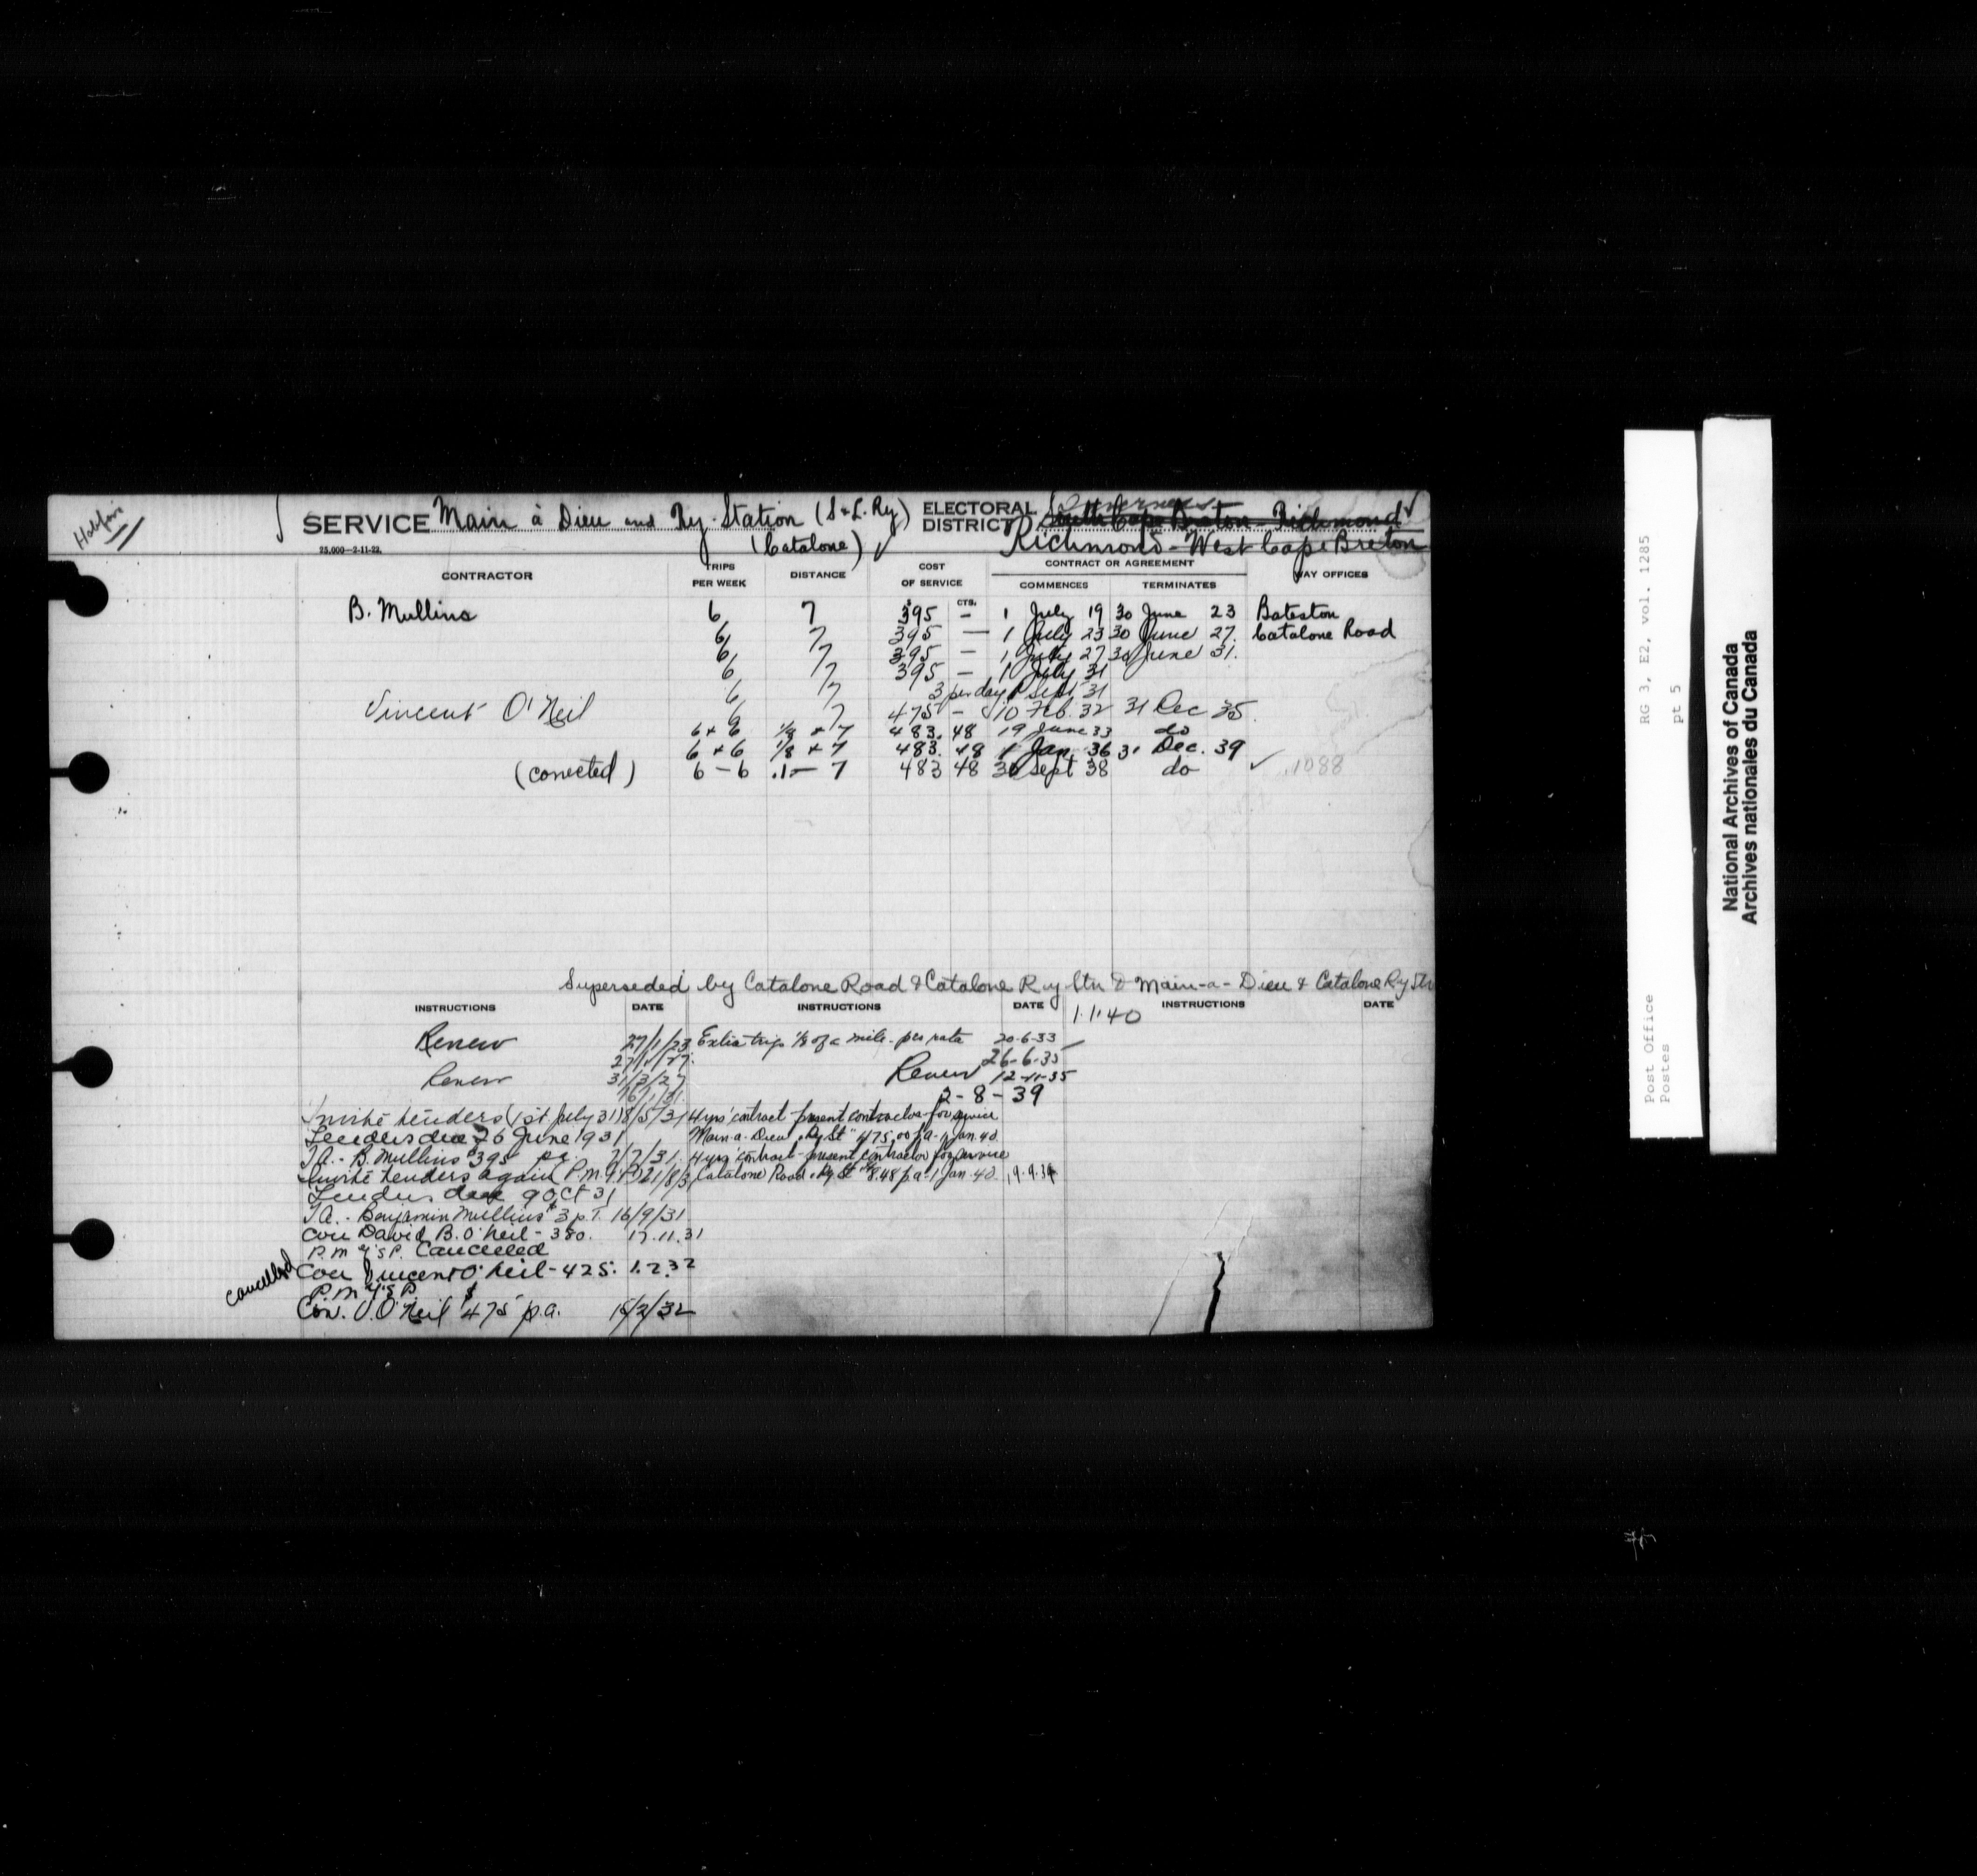 Halifax
SERVICE Main à Dieu and Ry. Station (S & L. Ry)
(Catalone)
25,000—2-11-22.
ELECTORAL DISTRICT South Cape Breton - Richmond
Richmond - West Cape Breton
CONTRACTOR TRIPS PER WEEK DISTANCE COST OF SERVICE CONTRACT OR AGREEMENT COMMENCES TERMINATES WAY OFFICES
$ CTS.
B. Mullins 6 7 395 — 1 July 19 30 June 23 Bateston
6 7 395 — 1 July 23 30 June 27. Catalone Road
6 7 395 — 1 July 27 30 June 31.
6 7 395 — 1 July 31
6 7 3 per day 1 Sept 31
Vincent O'Neil 6 7 475 — 10 Feb. 32 31 Dec 35
6 + 6 1/8 + 7 483.48 19 June 33 do
6 + 6 1/8 + 7 483.48 1 Jan. 36 31 Dec. 39
(corrected) 6 - 6 .1 - 7 483 48 30 Sept 38 do 1088
Superseded by Catalone Road & Catalone Ry Stn & Main-a-Dieu & Catalone Ry Stn
1.1.40
INSTRUCTIONS DATE INSTRUCTIONS DATE INSTRUCTIONS DATE
Renew 27/1/23
27/1/27.
Renew 31/3/27
16/1/31.
Invite tenders (1st July 31) 8/5/31
Tenders due 26 June 1931
T.A. - B. Mullins $395 pa. 7/7/31.
Invite tenders again P.M.G. 21/8/31
Tenders due 9 Oct 31
T.A. - Benjamin Mullins $3 p.T. 16/9/31
Con David B. O'Neil - 380. 17.11.31
P.M. Cancelled
cancelled Con Vincent O'Neil - 425. 1.2.32
P.M.
Con. V. O'Neil $475 p.a. 15/2/32
Extra trip 1/8 of a mile - per rate 20-6-33
26-6-35
Renew 12-11-35
2-8-39
4 yrs' contract - present contractor for service
Main-a-Dieu & Ry St" 475.00 p.a. - 1 Jan. 40.
4 yrs' contract - present contractor for service
Catalone Road & Ry St 8.48 p.a. - 1 Jan. 40.
RG 3, E2, vol. 1285
pt 5
Post Office
Postes
National Archives of Canada
Archives nationales du Canada